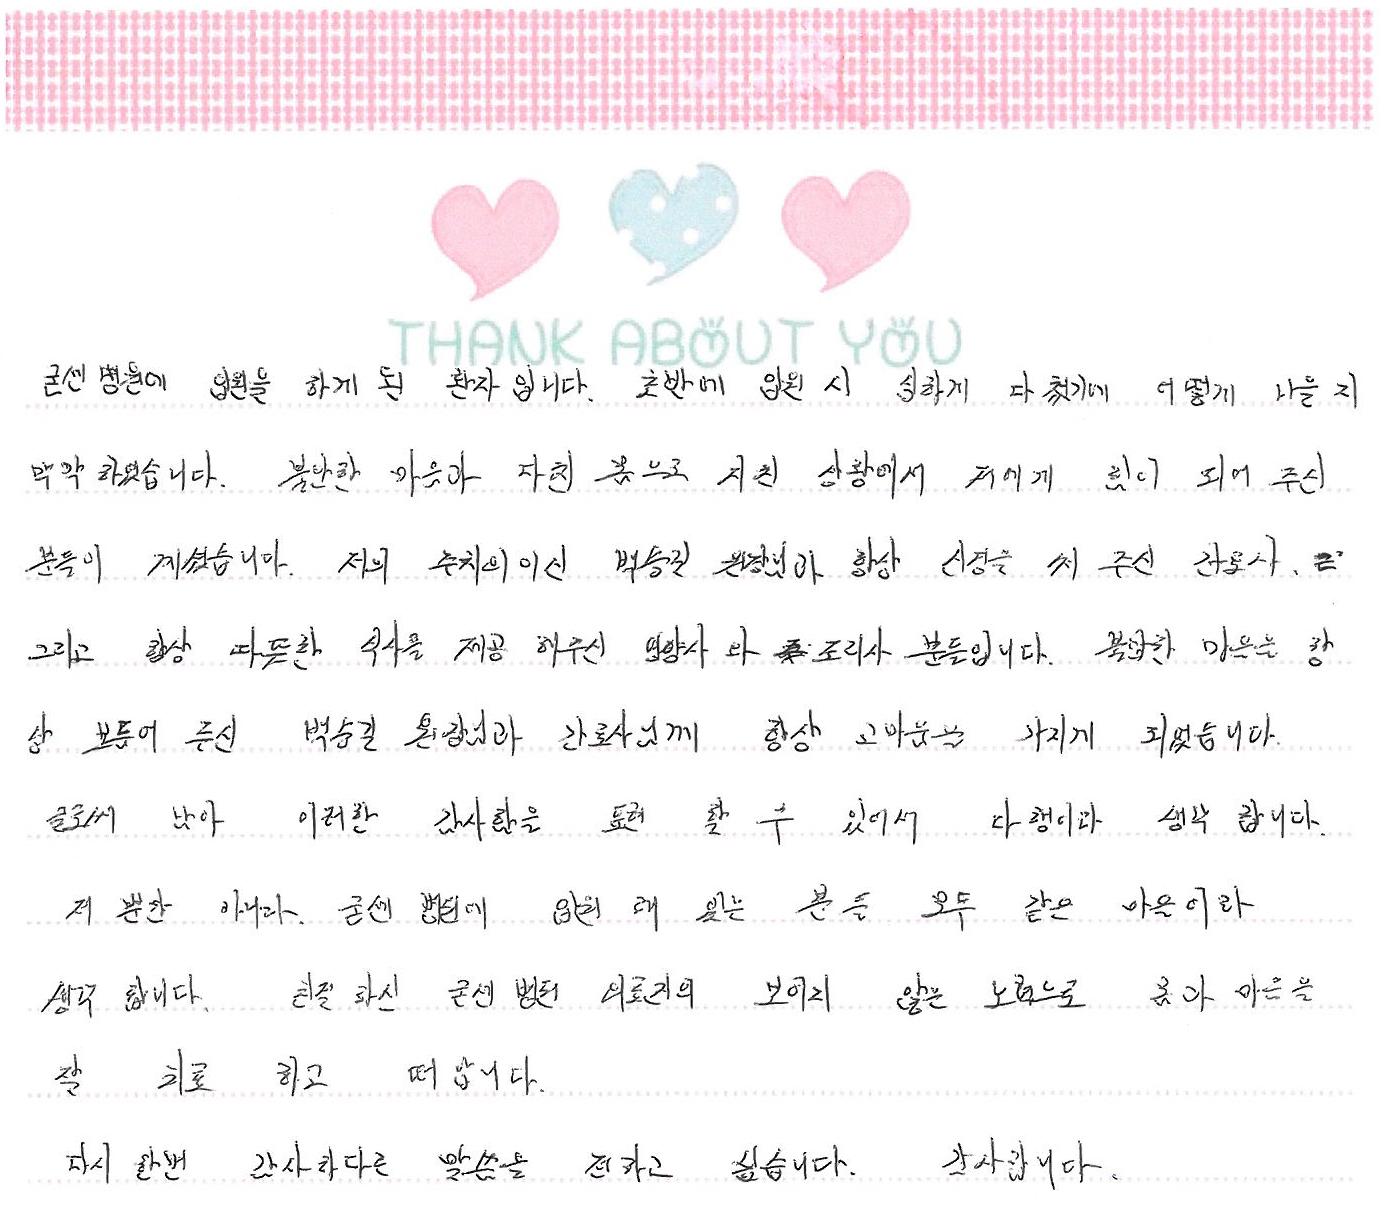 THANK ABOUT YOU
굳센병원에 입원을 하게 된 환자 입니다. 초반에 입원 시 심하게 다쳤기에 어떻게 나을지
막막하였습니다. 불안한 마음과 다친 몸으로 지친 상황에서 저에게 힘이 되어 주신
분들이 계셨습니다. 저의 주치의이신 백승길 원장님과 항상 신경을 써 주신 간호사.
그리고 항상 따뜻한 식사를 제공 해주신 영양사 와 조리사 분들입니다. 복잡한 마음을 항
상 보듬어 주신 백승길 원장님과 간호사님께 항상 고마움을 가지게 되었습니다.
글로써 남아 이러한 감사함을 표현 할 수 있어서 다행이라 생각 합니다.
저 뿐만 아니라. 굳센 병원에 입원 해 있는 분들 모두 같은 마음이라
생각 합니다. 친절 하신 굳센 병원 의료진의 보이지 않은 노력으로 몸과 마음을
잘 치료 하고 떠납니다.
다시 한번 감사하다는 말씀을 전하고 싶습니다. 감사합니다.